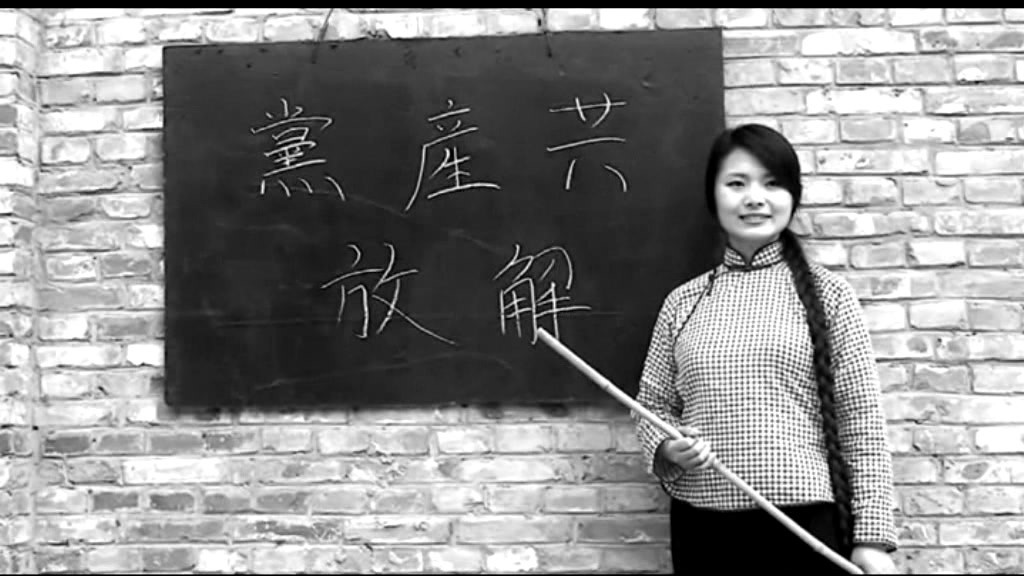 共產黨
解放